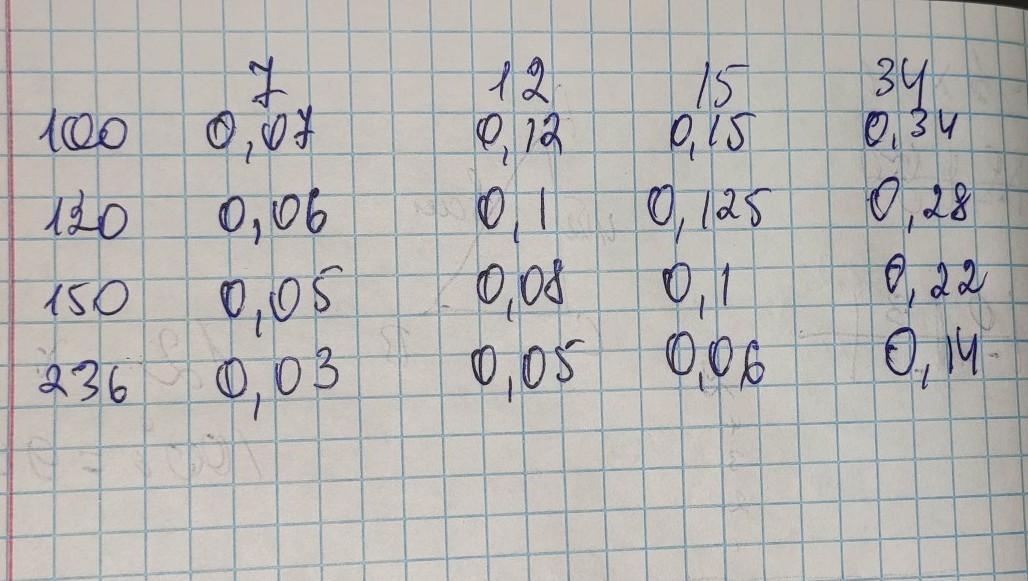 7 12 15 34
100 0,07 0,12 0,15 0,34
120 0,06 0,1 0,125 0,28
150 0,05 0,08 0,1 0,22
236 0,03 0,05 0,06 0,14